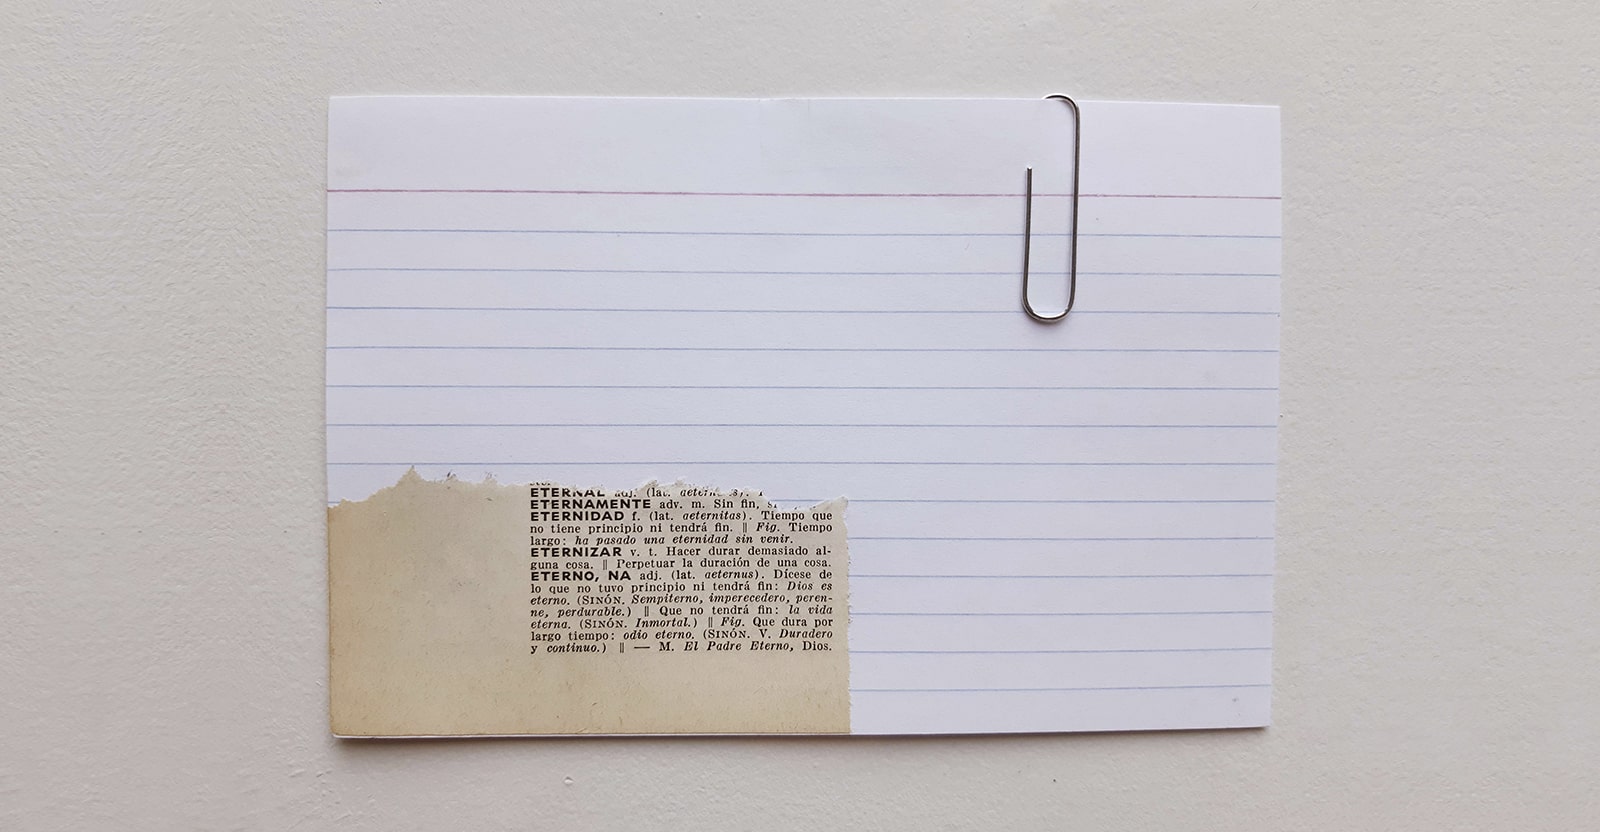 ETERNAL adj. (lat.
ETERNAMENTE adv. m. Sin fin,
ETERNIDAD f. (lat. aeternitas). Tiempo que
no tiene principio ni tendrá fin. ‖ Fig. Tiempo
largo: ha pasado una eternidad sin venir.
ETERNIZAR v. t. Hacer durar demasiado al-
guna cosa. ‖ Perpetuar la duración de una cosa.
ETERNO, NA adj. (lat. aeternus). Dícese de
lo que no tuvo principio ni tendrá fin: Dios es
eterno. (SINÓN. Sempiterno, imperecedero, peren-
ne, perdurable.) ‖ Que no tendrá fin: la vida
eterna. (SINÓN. Inmortal.) ‖ Fig. Que dura por
largo tiempo: odio eterno. (SINÓN. V. Duradero
y continuo.) ‖ — M. El Padre Eterno, Dios.